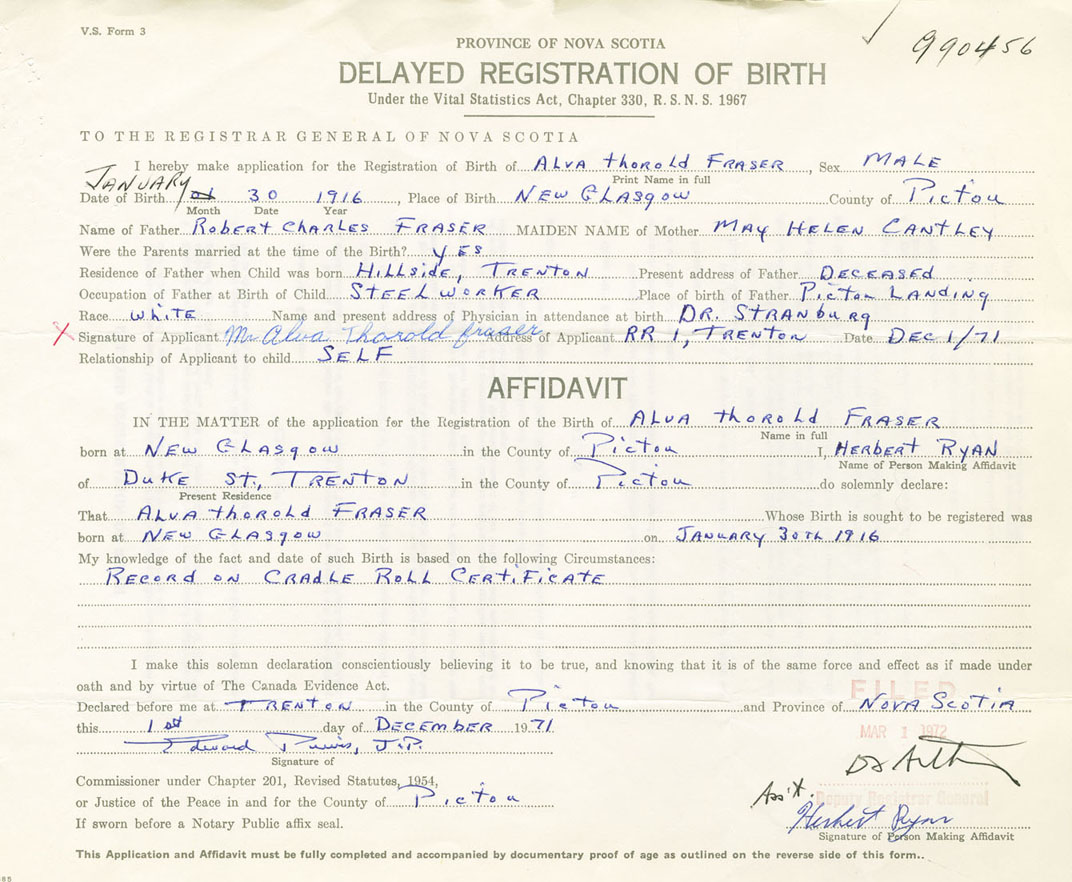 V.S. Form 3
990456
PROVINCE OF NOVA SCOTIA
DELAYED REGISTRATION OF BIRTH
Under the Vital Statistics Act, Chapter 330, R. S. N. S. 1967
TO THE REGISTRAR GENERAL OF NOVA SCOTIA
I hereby make application for the Registration of Birth of ALVA thorold FRASER, Sex MALE
Print Name in full
JANUARY
Date of Birth 01 30 1916, Place of Birth NEW GLASGOW County of Pictou
Month Date Year
Name of Father Robert Charles FRASER MAIDEN NAME of Mother MAY HELEN CANTLEY
Were the Parents married at the time of the Birth? YES
Residence of Father when Child was born HILLSIDE, TRENTON Present address of Father DECEASED
Occupation of Father at Birth of Child STEELWORKER Place of birth of Father Pictou LANDING
Race White Name and present address of Physician in attendance at birth DR. STRANBURG
X Signature of Applicant Mr Alva Thorold Fraser Address of Applicant RR 1, TRENTON Date DEC 1/71
Relationship of Applicant to child SELF
AFFIDAVIT
IN THE MATTER of the application for the Registration of the Birth of ALVA thorold FRASER
Name in full
born at NEW GLASGOW in the County of Pictou I, HERBERT RYAN
Name of Person Making Affidavit
of DUKE ST., TRENTON in the County of Pictou do solemnly declare:
Present Residence
That ALVA thorold FRASER Whose Birth is sought to be registered was
born at NEW GLASGOW on JANUARY 30TH 1916
My knowledge of the fact and date of such Birth is based on the following Circumstances:
RECORD ON CRADLE ROLL CERTIFICATE
I make this solemn declaration conscientiously believing it to be true, and knowing that it is of the same force and effect as if made under
oath and by virtue of The Canada Evidence Act.
FILED
Declared before me at TRENTON in the County of Pictou and Province of NOVA SCOTIA
this 1st day of DECEMBER 1971
MAR 1 1972
Edward Purvis, J.P.
Signature of
Commissioner under Chapter 201, Revised Statutes, 1954,
or Justice of the Peace in and for the County of Pictou
Ass't. Deputy Registrar General
If sworn before a Notary Public affix seal.
Herbert Ryan
Signature of Person Making Affidavit
This Application and Affidavit must be fully completed and accompanied by documentary proof of age as outlined on the reverse side of this form..